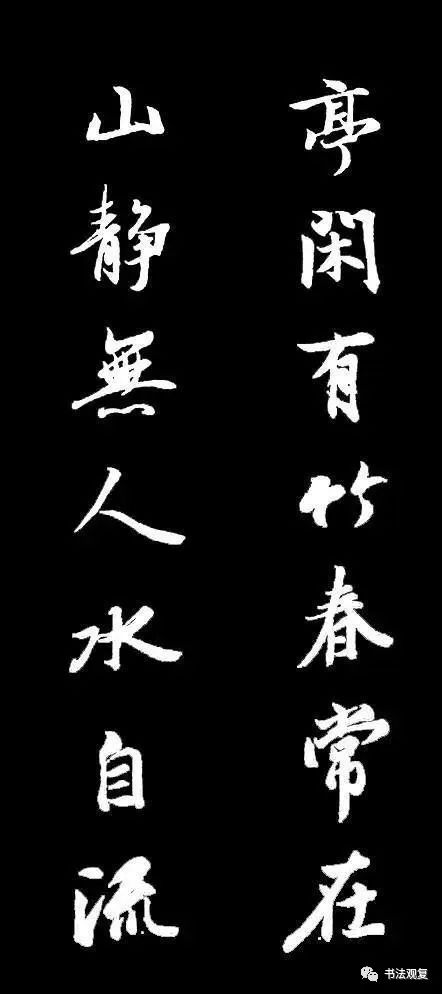 亭閑有竹春常在
山静無人水自流
书法观复